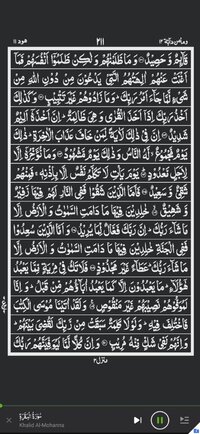 وما من دآبة ١٢ ٢١١ هود ١١
قَآئِمٌ وَّحَصِيْدٌ ۝ وَمَا ظَلَمْنٰهُمْ وَلٰكِنْ ظَلَمُوْۤا اَنْفُسَهُمْ فَمَاۤ
اَغْنَتْ عَنْهُمْ اٰلِهَتُهُمُ الَّتِيْ يَدْعُوْنَ مِنْ دُوْنِ اللّٰهِ مِنْ
شَيْءٍ لَّمَّا جَآءَ اَمْرُ رَبِّكَ ؕ وَمَا زَادُوْهُمْ غَيْرَ تَتْبِيْبٍ ۝ وَكَذٰلِكَ
اَخْذُ رَبِّكَ اِذَاۤ اَخَذَ الْقُرٰى وَهِيَ ظَالِمَةٌ ؕ اِنَّ اَخْذَهٗۤ اَلِيْمٌ
شَدِيْدٌ ۝ اِنَّ فِيْ ذٰلِكَ لَاٰيَةً لِّمَنْ خَافَ عَذَابَ الْاٰخِرَةِ ؕ ذٰلِكَ
يَوْمٌ مَّجْمُوْعٌ ۙ لَّهُ النَّاسُ وَذٰلِكَ يَوْمٌ مَّشْهُوْدٌ ۝ وَمَا نُؤَخِّرُهٗۤ اِلَّا
لِاَجَلٍ مَّعْدُوْدٍ ۝ يَوْمَ يَاْتِ لَا تَكَلَّمُ نَفْسٌ اِلَّا بِاِذْنِهٖ ۚ فَمِنْهُمْ
شَقِيٌّ وَّسَعِيْدٌ ۝ فَاَمَّا الَّذِيْنَ شَقُوْا فَفِي النَّارِ لَهُمْ فِيْهَا زَفِيْرٌ
وَّشَهِيْقٌ ۝ خٰلِدِيْنَ فِيْهَا مَا دَامَتِ السَّمٰوٰتُ وَالْاَرْضُ اِلَّا
مَا شَآءَ رَبُّكَ ؕ اِنَّ رَبَّكَ فَعَّالٌ لِّمَا يُرِيْدُ ۝ وَاَمَّا الَّذِيْنَ سُعِدُوْا
فَفِي الْجَنَّةِ خٰلِدِيْنَ فِيْهَا مَا دَامَتِ السَّمٰوٰتُ وَالْاَرْضُ اِلَّا
مَا شَآءَ رَبُّكَ ؕ عَطَآءً غَيْرَ مَجْذُوْذٍ ۝ فَلَا تَكُ فِيْ مِرْيَةٍ مِّمَّا يَعْبُدُ
هٰۤؤُلَآءِ ؕ مَا يَعْبُدُوْنَ اِلَّا كَمَا يَعْبُدُ اٰبَآؤُهُمْ مِّنْ قَبْلُ ؕ وَاِنَّا
لَمُوَفُّوْهُمْ نَصِيْبَهُمْ غَيْرَ مَنْقُوْصٍ ۝ وَلَقَدْ اٰتَيْنَا مُوْسَى الْكِتٰبَ
فَاخْتُلِفَ فِيْهِ ؕ وَلَوْلَا كَلِمَةٌ سَبَقَتْ مِنْ رَّبِّكَ لَقُضِيَ بَيْنَهُمْ ؕ
وَاِنَّهُمْ لَفِيْ شَكٍّ مِّنْهُ مُرِيْبٍ ۝ وَاِنَّ كُلًّا لَّمَّا لَيُوَفِّيَنَّهُمْ رَبُّكَ
منزل ٣
سُورَةُ البَقَرَةِ
Khalid Al-Mohanna